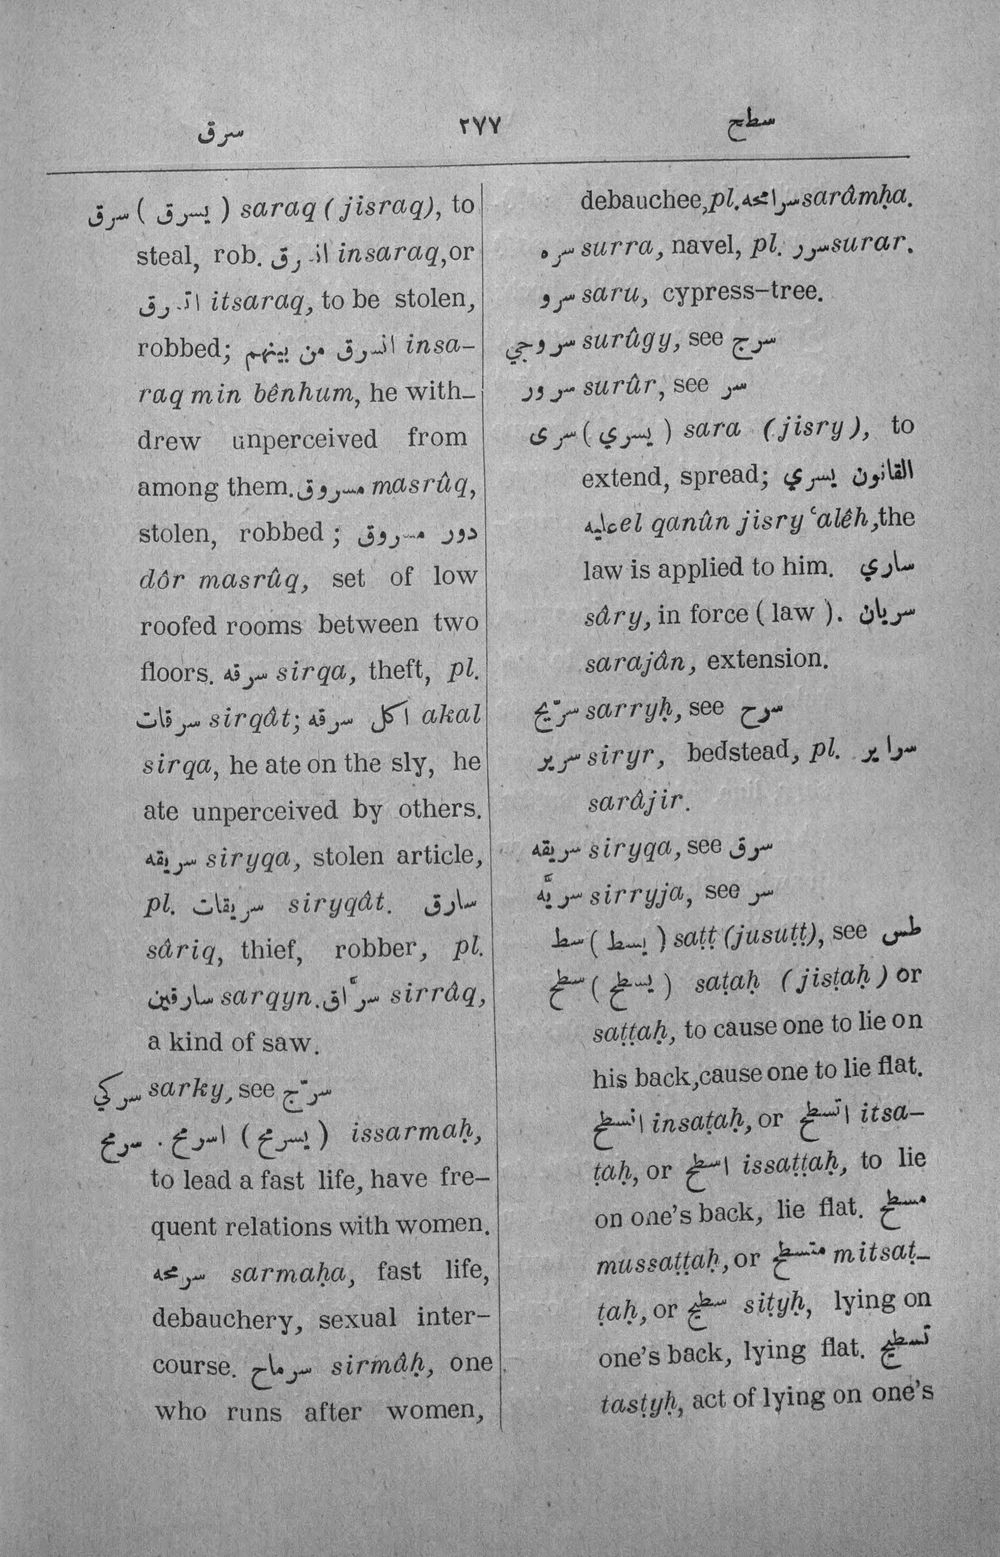 سرق ٢٧٧ سطح
سرق ( يسرق ) saraq (jisraq), to
steal, rob. انسرق insaraq, or
اتسرق itsaraq, to be stolen,
robbed; انسرق من بينهم insa-
raq min bênhum, he with-
drew unperceived from
among them. مسروق masrûq,
stolen, robbed ; دور مسروق
dôr masrûq, set of low
roofed rooms between two
floors. سرقه sirqa, theft, pl.
سرقات sirqât; اكل سرقه akal
sirqa, he ate on the sly, he
ate unperceived by others.
سريقه siryqa, stolen article,
pl. سريقات siryqât. سارق
sâriq, thief, robber, pl.
سارقين sarqyn. سرّاق sirrâq,
a kind of saw.
سركي sarky, see سرّج
سرمح . اسرمح (يسرمح) issarmaḥ,
to lead a fast life, have fre-
quent relations with women.
سرمحه sarmaḥa, fast life,
debauchery, sexual inter-
course. سرماح sirmâḥ, one
who runs after women,
debauchee, pl. سرامحه sarâmḥa.
سره surra, navel, pl. سرر surar.
سرو saru, cypress-tree.
سروجي surûgy, see سرج
سرور surûr, see سر
سرى ( يسري ) sara (jisry), to
extend, spread; القانون يسري
عليه el qanûn jisry ‘alêh, the
law is applied to him. ساري
sâry, in force ( law ). سريان
sarajân, extension.
سرّيح sarryḥ, see سرح
سرير siryr, bedstead, pl. سراير
sarâjir.
سريقه siryqa, see سرق
سريّه sirryja, see سر
سط ( يسط ) saṭṭ (jusuṭṭ), see طس
سطح ( يسطح ) saṭaḥ (jisṭaḥ) or
saṭṭaḥ, to cause one to lie on
his back, cause one to lie flat.
انسطح insaṭaḥ, or اتسطح itsa-
ṭaḥ, or اسطح issaṭṭaḥ, to lie
on one's back, lie flat. مسطح
mussaṭṭaḥ, or متسطح mitsaṭ-
ṭaḥ, or سطيح siṭyḥ, lying on
one's back, lying flat. تسطيح
tasṭyḥ, act of lying on one's